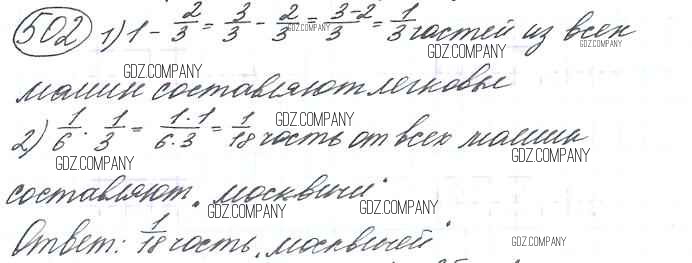 502 1) 1 - 2/3 = 3/3 - 2/3 = (3-2)/3 = 1/3 частей из всех
GDZ.COMPANY
GDZ.COMPANY
GDZ.COMPANY GDZ.COMPANY
машин составляют легковые
GDZ.COMPANY
2) 1/6 · 1/3 = (1·1)/(6·3) = 1/18 часть от всех машин
GDZ.COMPANY GDZ.COMPANY
составляют "москвичи"
GDZ.COMPANY GDZ.COMPANY
Ответ: 1/18 часть "москвичей"
GDZ.COMPANY